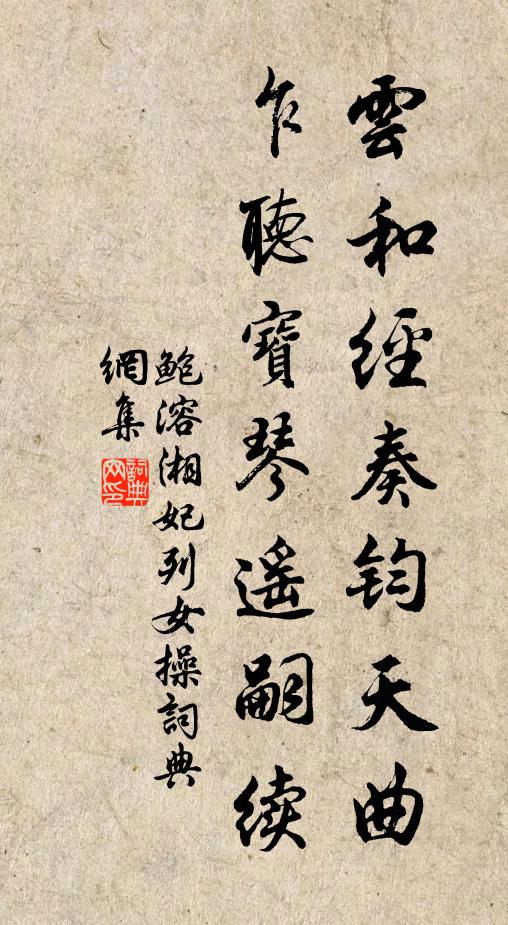 雲和經奏鈞天曲
乍聽寶琴遥嗣续
鲍溶湘妃列女操詞典
網集
詞典网印